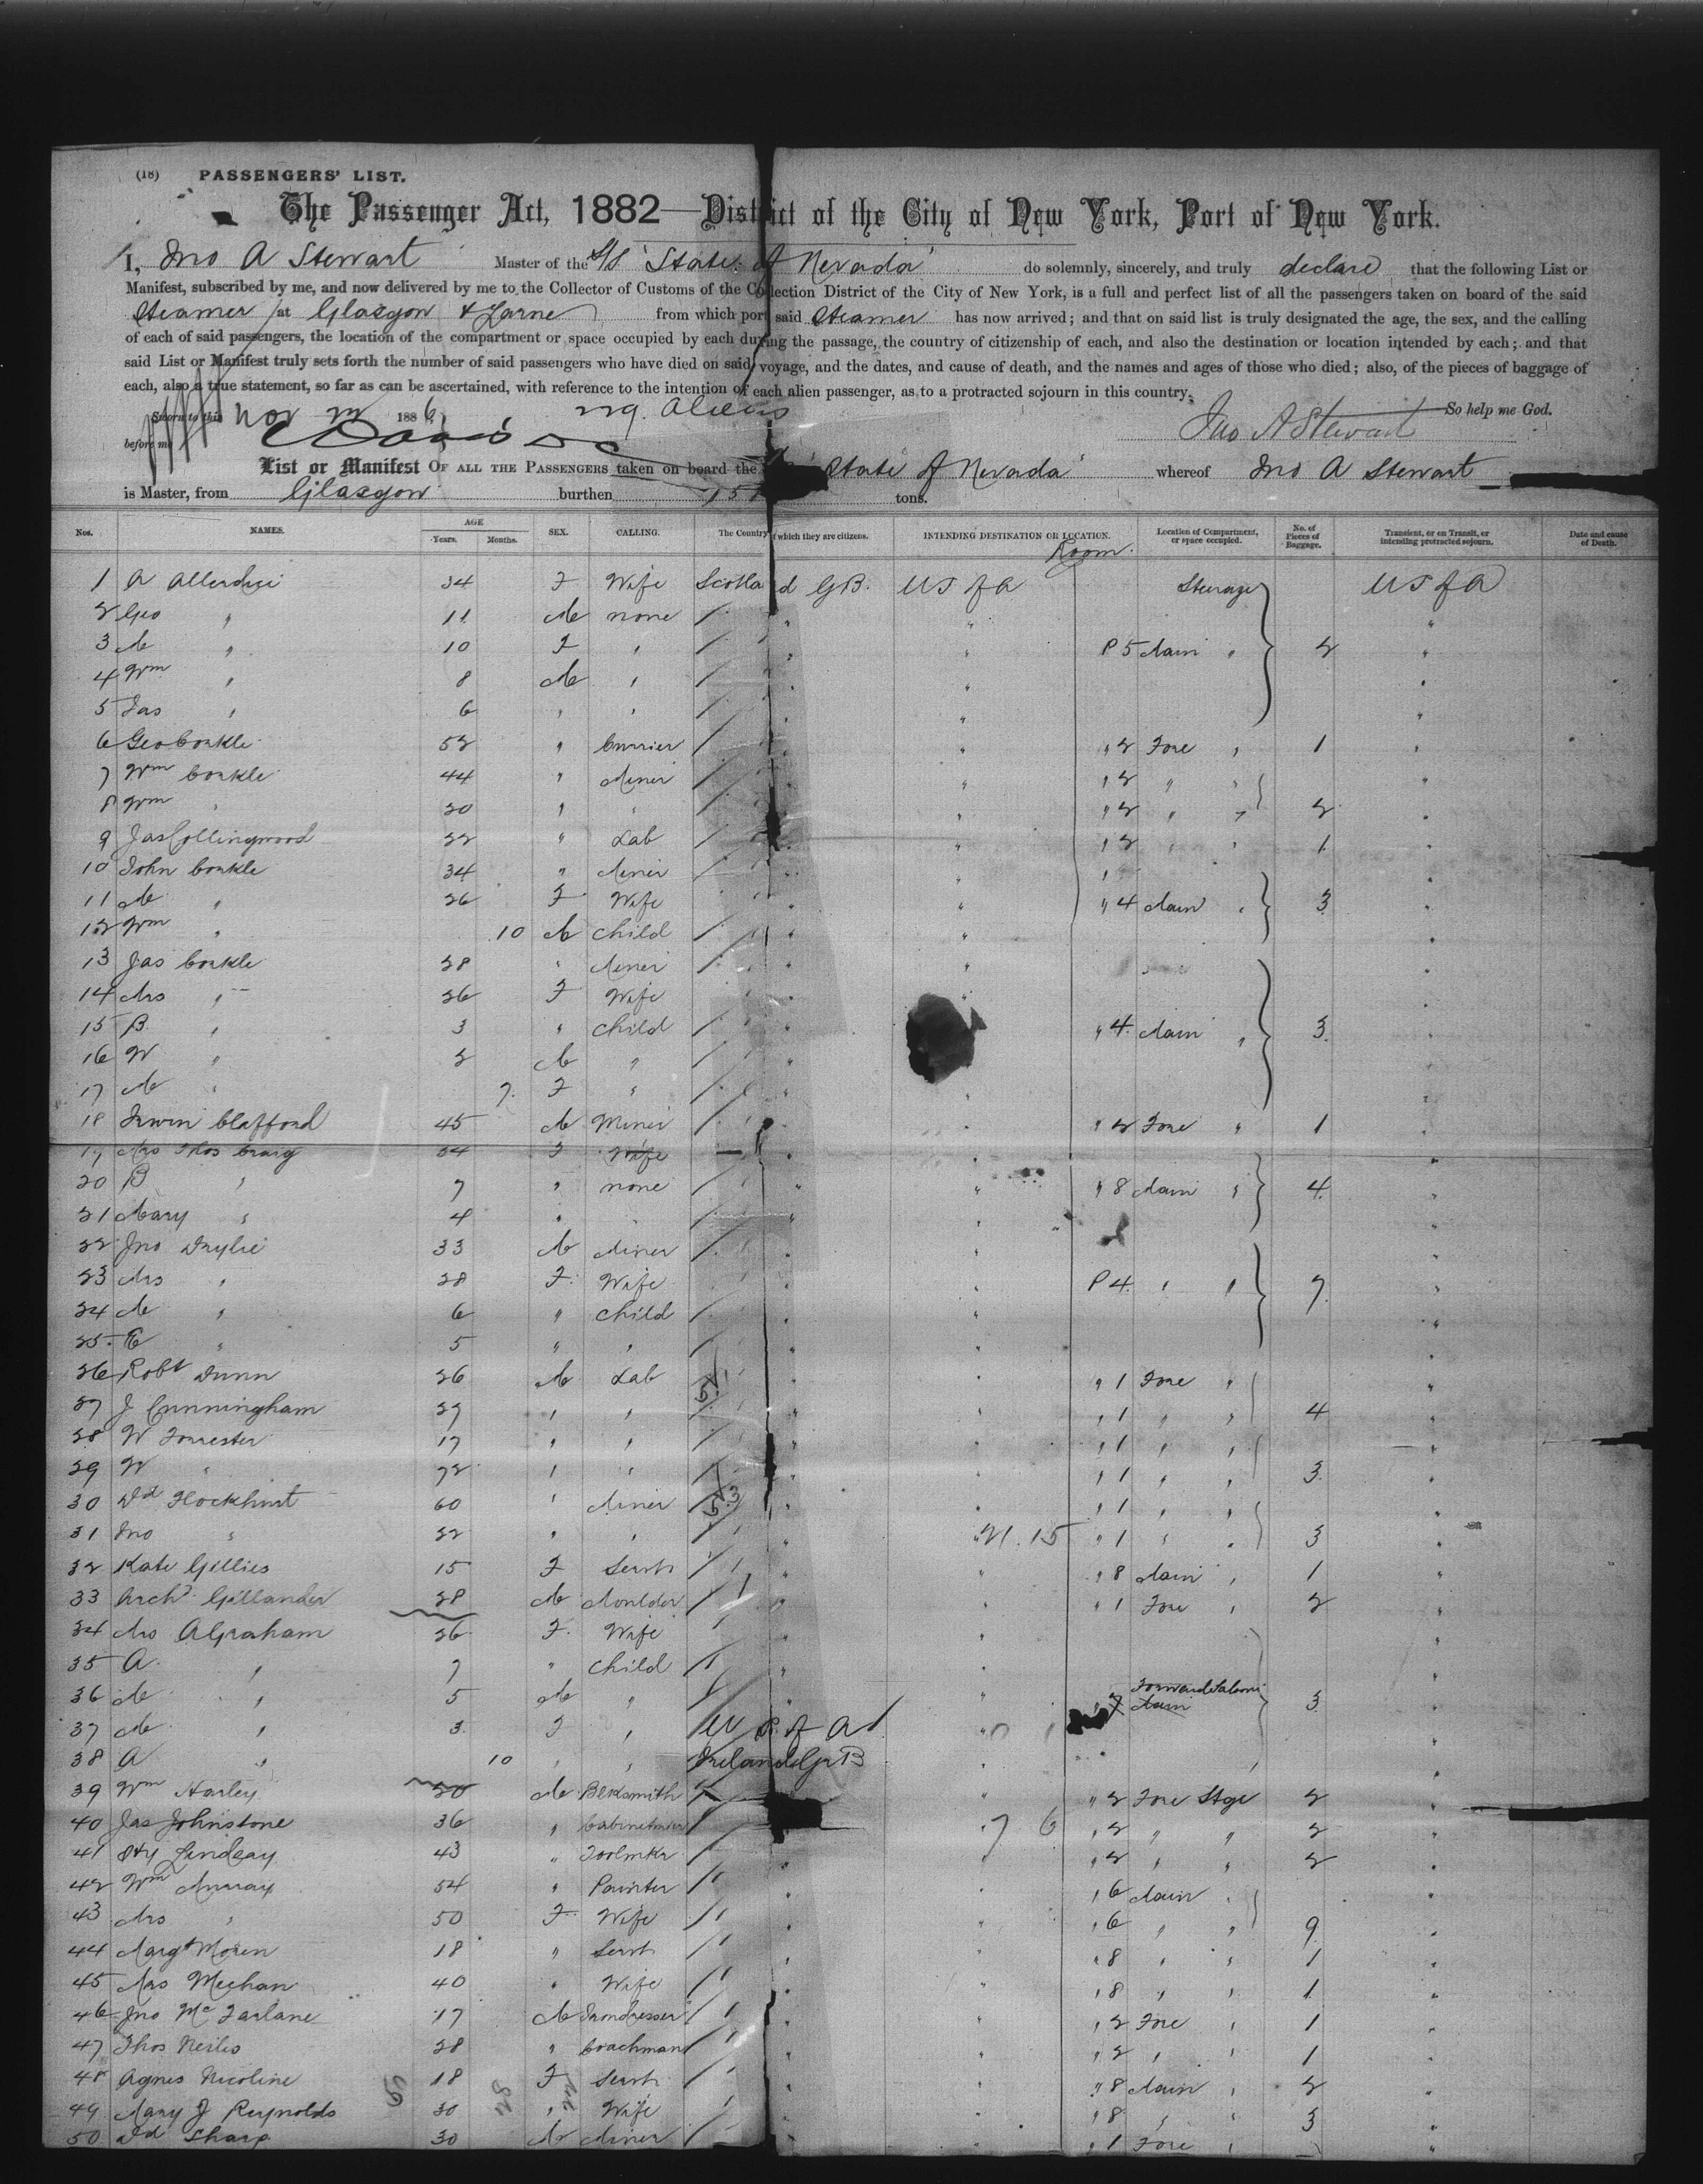 (18) PASSENGERS' LIST.
The Passenger Act, 1882—District of the City of New York, Port of New York.
I, Jno A Stewart Master of the S/S "State of Nevada" do solemnly, sincerely, and truly declare that the following List or
Manifest, subscribed by me, and now delivered by me to the Collector of Customs of the Collection District of the City of New York, is a full and perfect list of all the passengers taken on board of the said
Steamer at Glasgow & Larne from which port said Steamer has now arrived; and that on said list is truly designated the age, the sex, and the calling
of each of said passengers, the location of the compartment or space occupied by each during the passage, the country of citizenship of each, and also the destination or location intended by each; and that
said List or Manifest truly sets forth the number of said passengers who have died on said voyage, and the dates, and cause of death, and the names and ages of those who died; also, of the pieces of baggage of
each, also a true statement, so far as can be ascertained, with reference to the intention of each alien passenger, as to a protracted sojourn in this country.
Sworn to this Nov 1886 229. Aliens So help me God.
before me Jno A Stewart
List or Manifest OF ALL THE PASSENGERS taken on board the "State of Nevada" whereof Jno A Stewart
is Master, from Glasgow burthen tons.
Nos. NAMES. AGE Years. Months. SEX. CALLING. The Country of which they are citizens. INTENDING DESTINATION OR LOCATION. Location of Compartment, or space occupied. No. of Pieces of Baggage. Transient, or en Transit, or intending protracted sojourn. Date and cause of Death.
Room
1 A Allerdice 34 F Wife Scotland GB. US of A Steerage US of A
2 Geo " 11 M none " "
3 M " 10 F " " " P 5 Main " 2 "
4 Wm " 8 M " " " "
5 Jas " 6 " " " " "
6 Geo Conkle 52 " Currier " " " 2 Fore " 1 "
7 Wm Conkle 44 " Miner " " " 2 " " "
8 Wm " 20 " " " " " 2 " " 2 "
9 Jas Collingwood 22 " Lab " " " 2 " " 1 "
10 John Conkle 34 " Miner " " "
11 M " 26 F Wife " " " 4 Main " 3 "
12 Wm " 10 M Child " " "
13 Jas Conkle 28 " Miner " " "
14 Mrs " 26 F Wife " " "
15 B " 3 " Child " " 4 Main " 3 "
16 W " 2 M " " "
17 M " 7 F " " "
18 Irwin Clafford 45 M Miner " " " 2 Fore " 1 "
19 Mrs Thos Craig 34 F Wife " " "
20 B " 7 " none " " " 8 Main " 4 "
21 Mary " 4 " " " " "
22 Jno Drylie 33 M Miner " " "
23 Mrs " 28 F Wife " " P 4 " " 7 "
24 M " 6 " Child " " "
25 E " 5 " " " " "
26 Robt Dunn 26 M Lab " " " 1 Fore " "
27 J Cunningham 27 " " " " " 1 " " 4 "
28 W Forrester 17 " " " " " 1 " " "
29 W " 72 " " " " " 1 " " 3 "
30 Dd Flockhart 60 " Miner " " " 1 " " "
31 Jno " 22 " " " " 21.15 " 1 " " 3 "
32 Kate Gillies 15 F Servt " " " 8 Main " 1 "
33 Archd Gillander 28 M Moulder " " " 1 Fore " 2 "
34 Mrs A Graham 26 F Wife " " "
35 A " 7 " Child " " "
36 M " 5 M " " " " 7 Forward Saloon Main 3 "
37 M " 3 F " US of A " "
38 A " 10 " " Ireland Gr B "
39 Wm Harley 20 M Blksmith " " " 2 Fore Stge 2 "
40 Jas Johnstone 36 " Cabinetmkr " 7 6 " 2 " " 2 "
41 Hy Lindsay 43 " Toolmkr " " " 2 " " 2 "
42 Wm Murray 54 " Painter " " " 6 Main " "
43 Mrs " 50 F Wife " " " 6 " " 9 "
44 Margt Moren 18 " Servt " " " 8 " " 1 "
45 Mrs Meehan 40 " Wife " " " 8 " " 1 "
46 Jno McFarlane 17 M Irondresser " " " 2 Fore " 1 "
47 Thos Neilis 28 " Coachman " " " 2 " " 1 "
48 Agnes Nicoline 18 F Servt " " " 8 Main " 2 "
49 Mary J Reynolds 30 " Wife " " " 8 " " 3 "
50 Dd Sharp 30 M Miner " " " 1 Fore " "